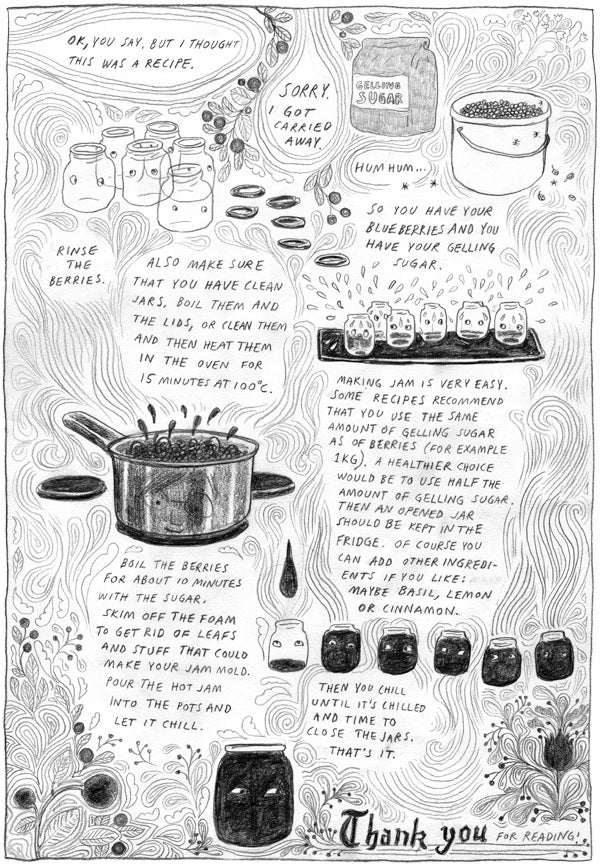 OK, YOU SAY. BUT I THOUGHT
THIS WAS A RECIPE.
SORRY.
I GOT
CARRIED
AWAY.
GELLING
SUGAR
HUM HUM...
SO YOU HAVE YOUR
BLUEBERRIES AND YOU
HAVE YOUR GELLING
SUGAR.
RINSE
THE
BERRIES.
ALSO MAKE SURE
THAT YOU HAVE CLEAN
JARS. BOIL THEM AND
THE LIDS, OR CLEAN THEM
AND THEN HEAT THEM
IN THE OVEN FOR
15 MINUTES AT 100°C.
MAKING JAM IS VERY EASY.
SOME RECIPES RECOMMEND
THAT YOU USE THE SAME
AMOUNT OF GELLING SUGAR
AS OF BERRIES (FOR EXAMPLE
1KG). A HEALTHIER CHOICE
WOULD BE TO USE HALF THE
AMOUNT OF GELLING SUGAR.
THEN AN OPENED JAR
SHOULD BE KEPT IN THE
FRIDGE. OF COURSE YOU
CAN ADD OTHER INGREDI-
ENTS IF YOU LIKE:
MAYBE BASIL, LEMON
OR CINNAMON.
BOIL THE BERRIES
FOR ABOUT 10 MINUTES
WITH THE SUGAR.
SKIM OFF THE FOAM
TO GET RID OF LEAFS
AND STUFF THAT COULD
MAKE YOUR JAM MOLD.
POUR THE HOT JAM
INTO THE POTS AND
LET IT CHILL.
THEN YOU CHILL
UNTIL IT'S CHILLED
AND TIME TO
CLOSE THE JARS.
THAT'S IT.
Thank you FOR READING!